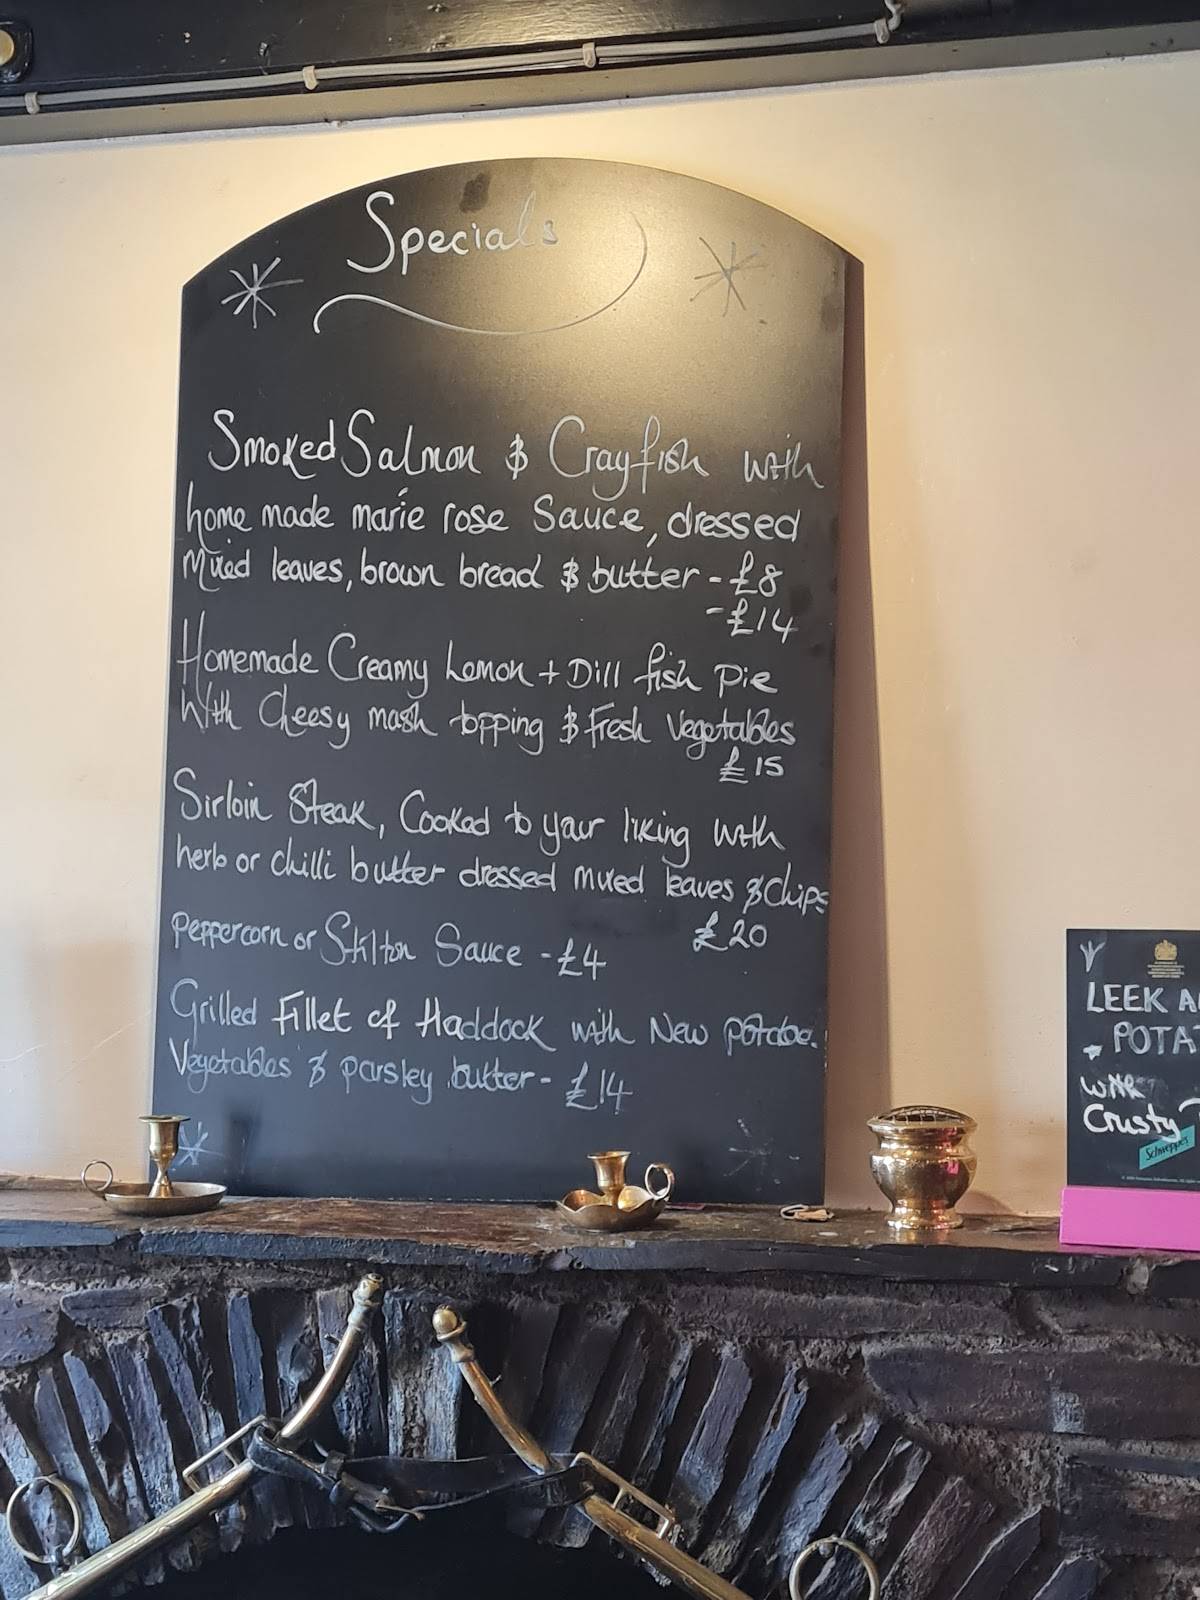 Specials
Smoked Salmon & Crayfish with
home made marie rose Sauce, dressed
Mixed leaves, brown bread & butter - £8
- £14
Homemade Creamy Lemon + Dill fish pie
With Cheesy mash topping & Fresh Vegetables
£15
Sirloin Steak, Cooked to your liking with
herb or chilli butter dressed mixed leaves & Chips
£20
Peppercorn or Stilton Sauce - £4
Grilled Fillet of Haddock with New potatoe.
Vegetables & parsley butter - £14
LEEK A
POTA
with
Crusty
Schweppes